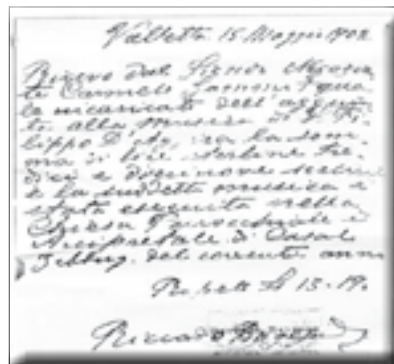 Valletta 15 Maggio 902
Ricevo dal Signor Negozian
te Carmelo Sammut qua
le incaricato dell'
to alla musica di S. Fi
lippo D' la som
ma di lire sterline tre
dici e dicinove scellini
e la suddetta musica è
stata eseguita nella
Chiesa Parrocchiale e
Arcipretale di Casal
Zebbug del corrente anno
£ 13-19-
Riccardo